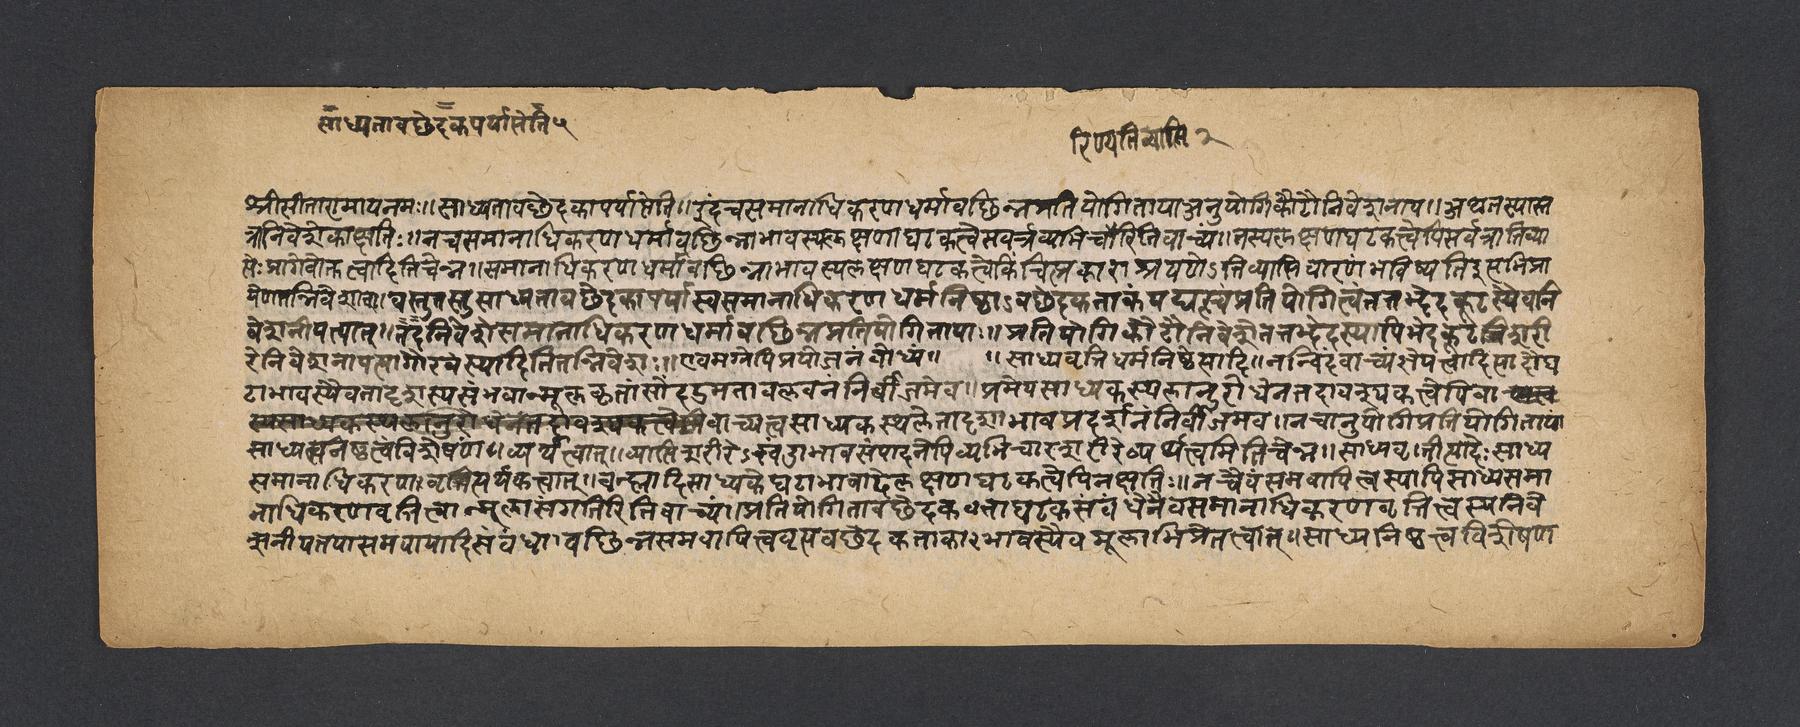 साध्यतावछेदकपर्याप्तेति ५
रिष्यतिव्याप्ति २
श्रीसीतारामायनमः॥साध्यतावछेदकापर्याप्तेति॥इदंचसमानाधिकरणधर्मावछिन्नप्रतियोगितायाअनुयोगिकोटौनिवेशनाय॥अथतस्यास्त
त्रनिवेशेकाक्षतिः॥नचसमानाधिकरणधर्मावछिन्नाभावस्यलक्षणाघटकत्वेसर्वत्रव्यभिचारिनिवाच्यं॥तस्यलक्षणघटकत्वेपिसर्वत्रातिव्या
प्तेःप्रागेवोक्तत्वादितिचेन्न॥समानाधिकरणधर्मावछिन्नाभावस्यलक्षणघटकत्वेकिंचित्प्रकाराश्रयणेऽतिव्याप्तिवारणंभविष्यतिइत्यभिप्रा
येणतन्निवेशात्॥वस्तुतस्तुसाध्यतावछेदकापर्याप्तस्वसमानाधिकरणधर्मनिष्ठाऽवछेदकताकंयद्यत्स्वंप्रतियोगित्वंतत्तद्भेदकूटस्यैवनि
वेशनीयत्वात्॥तदनिवेशेसमानाधिकरणधर्मावछिन्नप्रतियोगितायाः॥प्रतियोगिकोटौनिवेशेतत्तद्भेदस्यापिभेदकूटनिशरी
रेनिवेशनापत्त्यागौरवंस्यादितितन्निवेशः॥एवमग्रेपिप्रयोजनंबोध्यं॥ ॥साध्यवृत्तिधर्मनिष्ठेत्यादि॥नन्विदंवाच्यंज्ञेयत्वादित्यादौघ
टाभावस्यैवतादृशस्यसंभवान्मूलकृतांसौंदडमतावलंबनंनिर्बीजमेव॥प्रमेयसाध्यकस्थलानुरोधेनतदावश्यकत्वेपिवा
वाच्यत्वसाध्यकस्थलेतादृशाभावप्रदर्शनंनिर्बीजमेव॥नचानुयोगिप्रतियोगितायां
साध्यसनिष्ठत्वंविशेषणं॥व्यर्थत्वात्॥व्याप्तिशरीरेऽखंडाभावसंपादनेपिव्यभिचारशरीरेव्यर्थत्वमितिचेन्न॥साध्यवृत्तीत्यादेःसाध्य
समानाधिकरणवृत्तीत्यर्थकत्वात्॥वन्ह्यादिसाध्यकेघटाभावादेर्लक्षणघटकत्वेपिनक्षतिः॥नच्चैवंसमवायित्वस्यापिसाध्यसमा
नाधिकरणवृत्तित्वान्मूलासंगतिरितिवाच्यं॥प्रतियोगितावछेदकताघटकसंबंधेनैवसमानाधिकरणवृत्तित्वस्यनिवे
शनीयतयासमवायादिसंबंधावछिन्नसमवायित्वत्वावछेदकताकाऽभावस्यैवमूलाभिप्रेतत्वात्॥साध्यनिष्ठत्वविशेषण